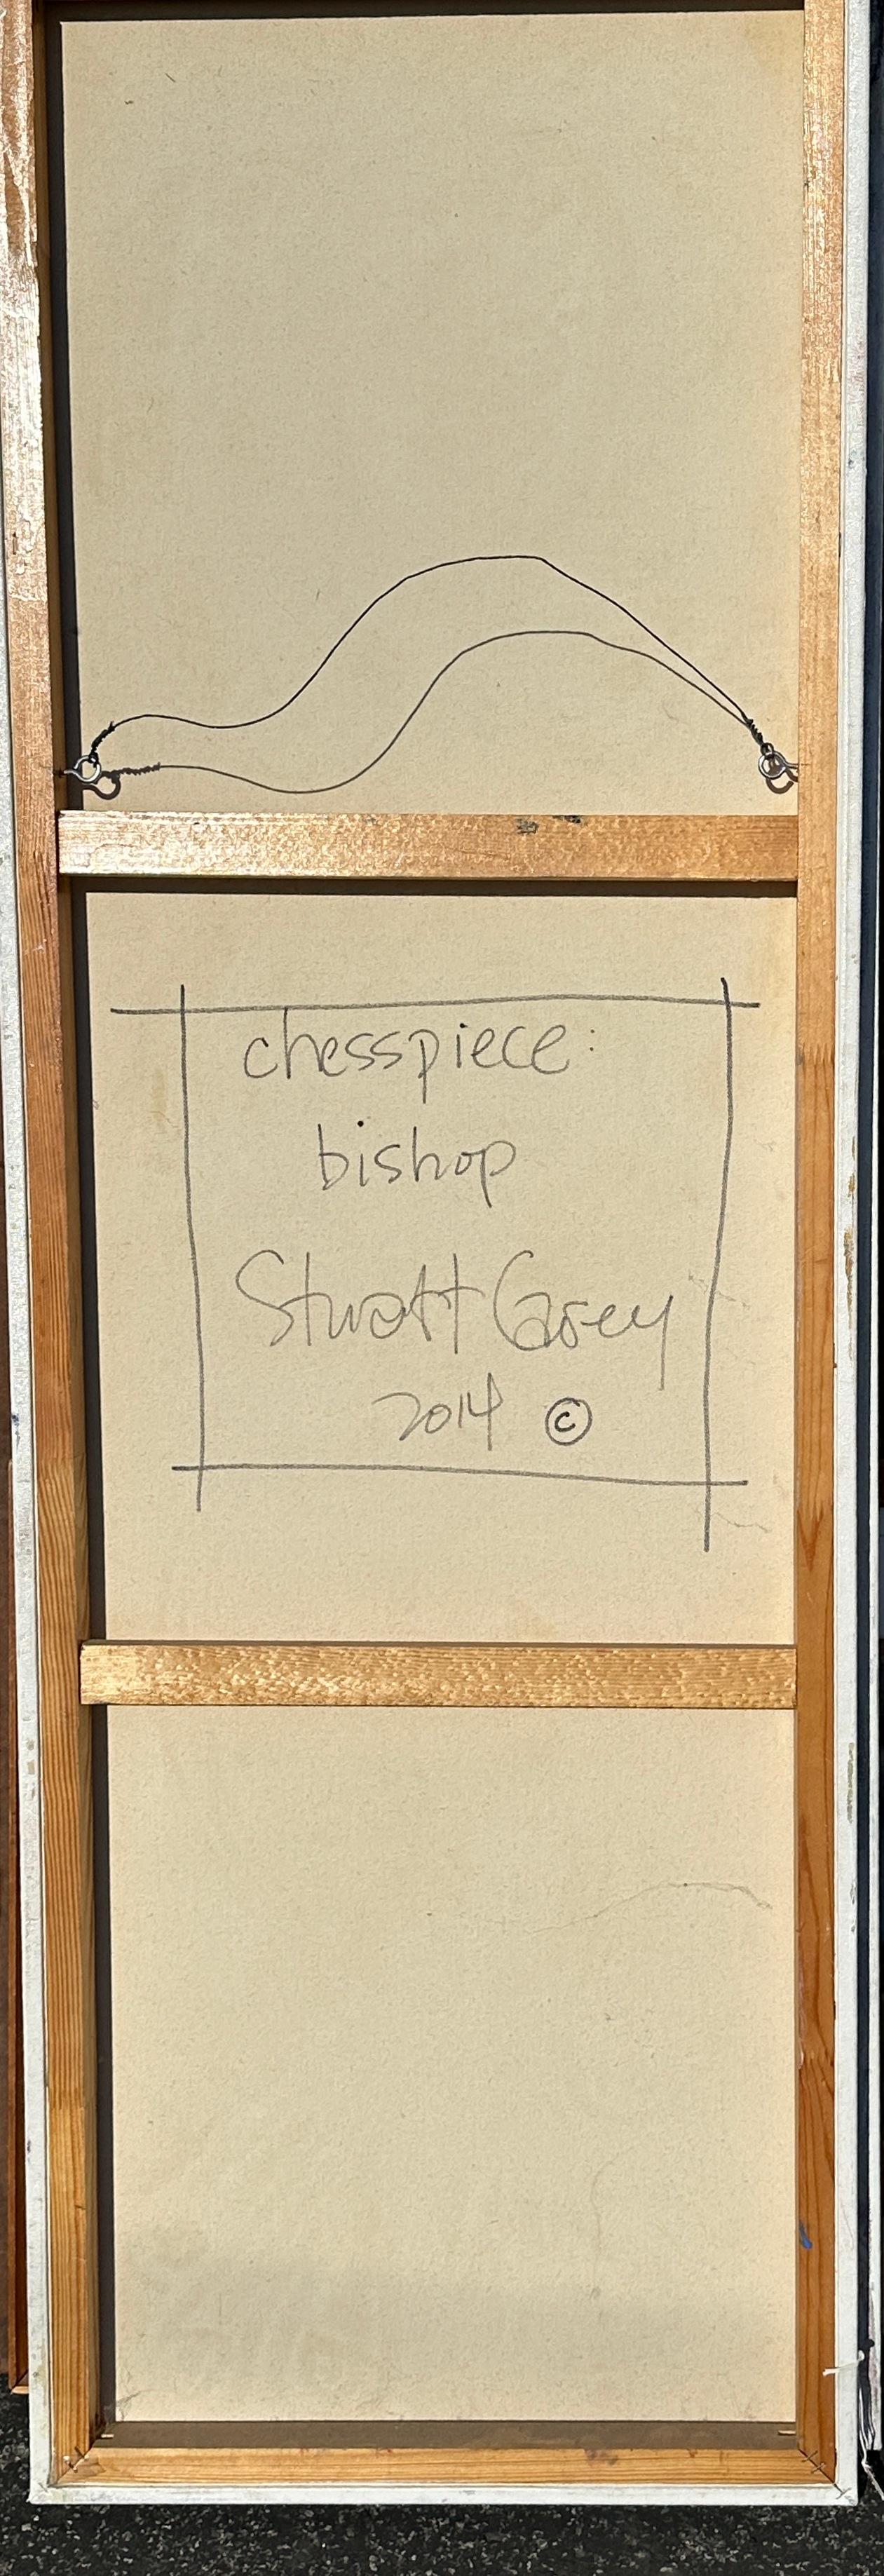 chesspiece:
bishop
Stuart
2014 ©